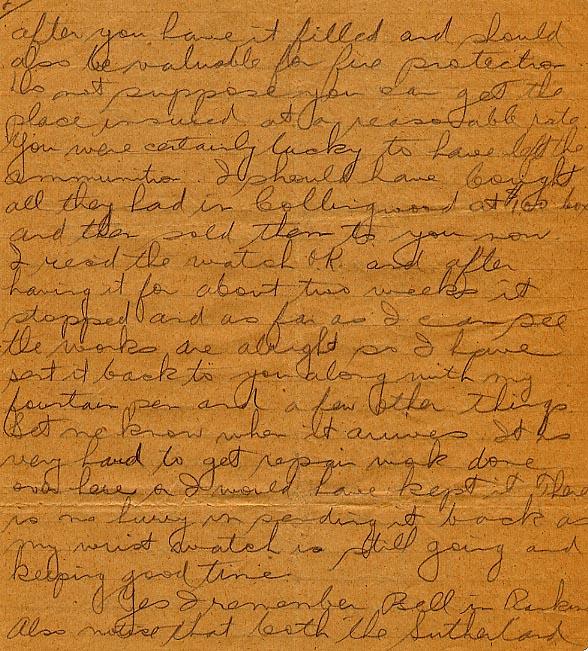 after you have it filled and should
also be valuable for fire protection.
Do not suppose you can get the
place insured at a reasonable rate
You were certainly lucky to have left the
ammunition. I should have bought
all they had in Collingwood at $1.00 box
and then sold them to you now.
I recd the watch O.K. and after
having it for about two weeks it
stopped and as far as I can see
the works are alright so I have
sent it back to you along with my
fountain pen and a few other things
Let me know when it arrives. It is
very hard to get repair work done
over here or I would have kept it. There
is no hurry in sending it back as
my wrist watch is still going and
keeping good time.
Yes I remember Bell in
Also notice that both the Sutherland